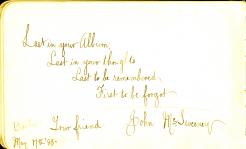 Last in your Album,
Last in your thoughts
Last to be remembered,
First to be forgot
Your friend John McSweeney
May 17th '98.